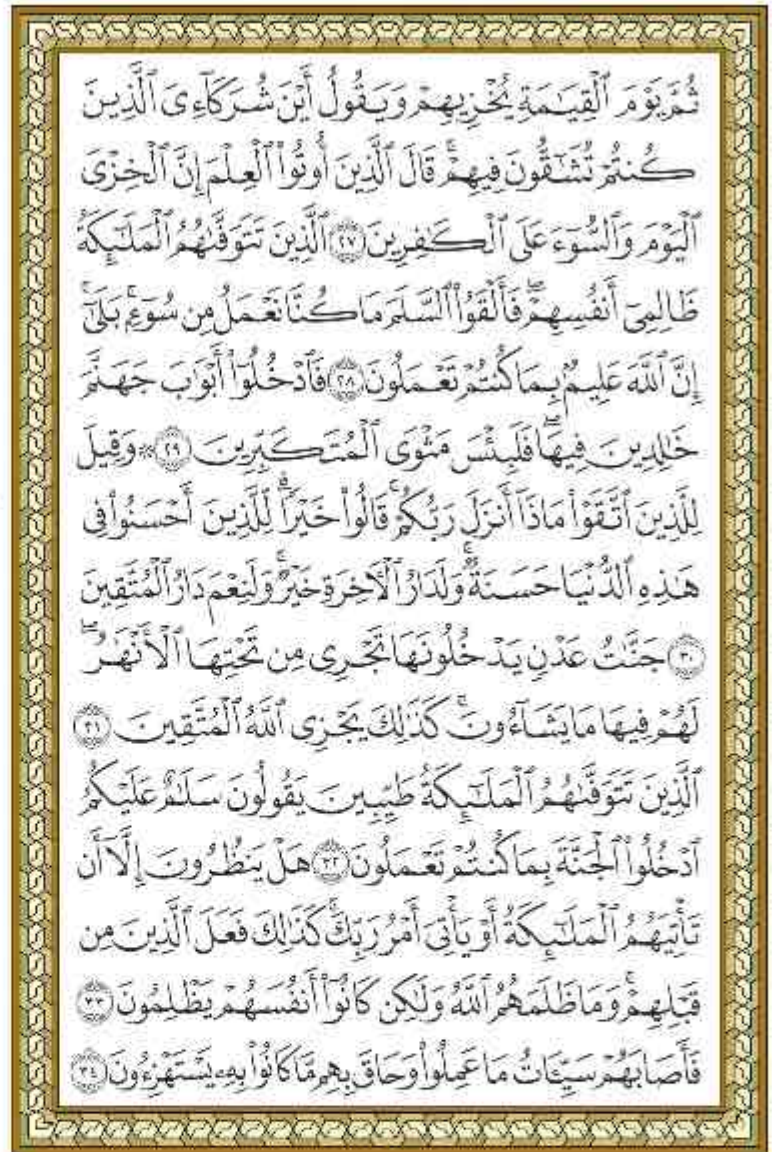 ثُمَّ يَوْمَ ٱلْقِيَـٰمَةِ يُخْزِيهِمْ وَيَقُولُ أَيْنَ شُرَكَآءِىَ ٱلَّذِينَ
كُنتُمْ تُشَـٰٓقُّونَ فِيهِمْ ۚ قَالَ ٱلَّذِينَ أُوتُوا۟ ٱلْعِلْمَ إِنَّ ٱلْخِزْىَ
ٱلْيَوْمَ وَٱلسُّوٓءَ عَلَى ٱلْكَـٰفِرِينَ ٢٧ ٱلَّذِينَ تَتَوَفَّىٰهُمُ ٱلْمَلَـٰٓئِكَةُ
ظَالِمِىٓ أَنفُسِهِمْ ۖ فَأَلْقَوُا۟ ٱلسَّلَمَ مَا كُنَّا نَعْمَلُ مِن سُوٓءٍۭ ۚ بَلَىٰٓ
إِنَّ ٱللَّهَ عَلِيمٌۢ بِمَا كُنتُمْ تَعْمَلُونَ ٢٨ فَٱدْخُلُوٓا۟ أَبْوَٰبَ جَهَنَّمَ
خَـٰلِدِينَ فِيهَا ۖ فَلَبِئْسَ مَثْوَى ٱلْمُتَكَبِّرِينَ ٢٩ ۞ وَقِيلَ
لِلَّذِينَ ٱتَّقَوْا۟ مَاذَآ أَنزَلَ رَبُّكُمْ ۚ قَالُوا۟ خَيْرًا ۗ لِّلَّذِينَ أَحْسَنُوا۟ فِى
هَـٰذِهِ ٱلدُّنْيَا حَسَنَةٌ ۚ وَلَدَارُ ٱلْـَٔاخِرَةِ خَيْرٌ ۚ وَلَنِعْمَ دَارُ ٱلْمُتَّقِينَ
٣٠ جَنَّـٰتُ عَدْنٍ يَدْخُلُونَهَا تَجْرِى مِن تَحْتِهَا ٱلْأَنْهَـٰرُ ۖ
لَهُمْ فِيهَا مَا يَشَآءُونَ ۚ كَذَٰلِكَ يَجْزِى ٱللَّهُ ٱلْمُتَّقِينَ ٣١
ٱلَّذِينَ تَتَوَفَّىٰهُمُ ٱلْمَلَـٰٓئِكَةُ طَيِّبِينَ ۙ يَقُولُونَ سَلَـٰمٌ عَلَيْكُمُ
ٱدْخُلُوا۟ ٱلْجَنَّةَ بِمَا كُنتُمْ تَعْمَلُونَ ٣٢ هَلْ يَنظُرُونَ إِلَّآ أَن
تَأْتِيَهُمُ ٱلْمَلَـٰٓئِكَةُ أَوْ يَأْتِىَ أَمْرُ رَبِّكَ ۚ كَذَٰلِكَ فَعَلَ ٱلَّذِينَ مِن
قَبْلِهِمْ ۚ وَمَا ظَلَمَهُمُ ٱللَّهُ وَلَـٰكِن كَانُوٓا۟ أَنفُسَهُمْ يَظْلِمُونَ ٣٣
فَأَصَابَهُمْ سَيِّـَٔاتُ مَا عَمِلُوا۟ وَحَاقَ بِهِم مَّا كَانُوا۟ بِهِۦ يَسْتَهْزِءُونَ ٣٤